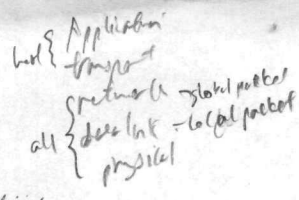 host { Application
transport
all { network - global packet
data link - local packet
physical